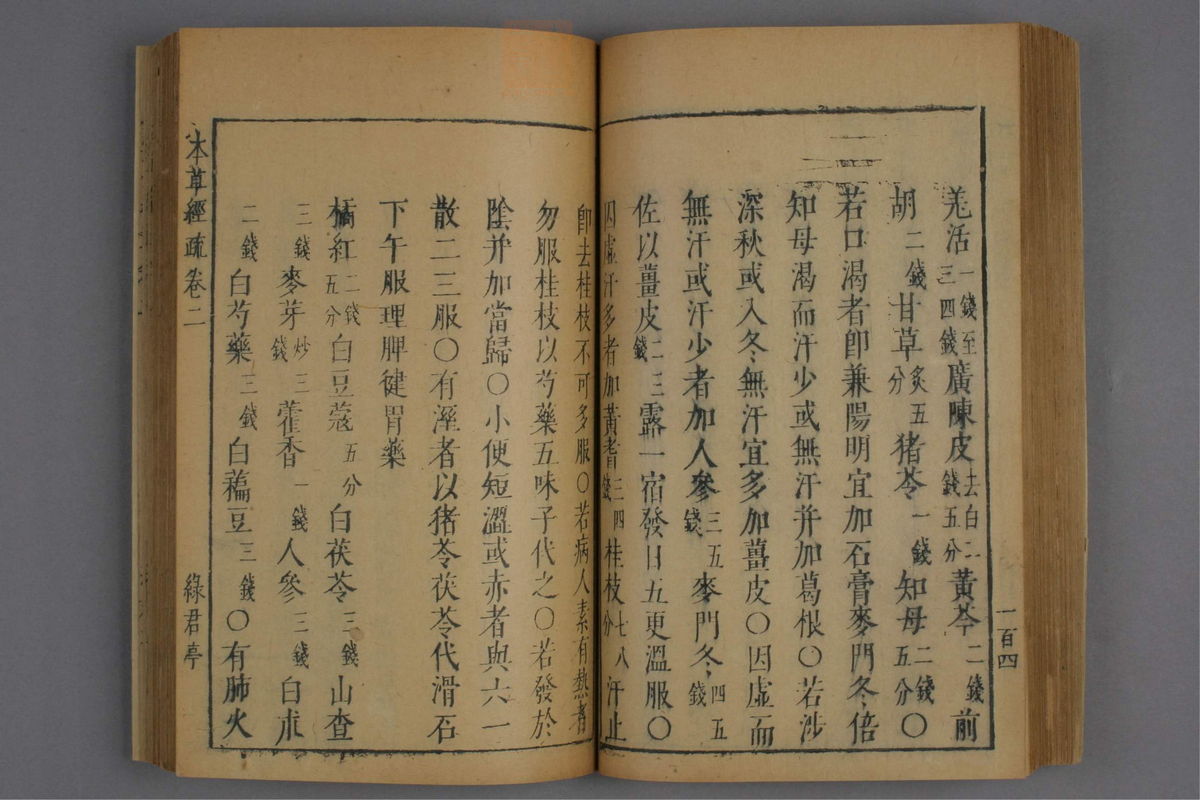 羗活一錢至三四錢廣陳皮去白二錢五分黃芩二錢前
胡二錢甘草炙五分猪苓一錢知母二錢五分〇
若口渴者卽兼陽明宜加石膏麥門冬倍
知母渴而汗少或無汗并加葛根〇若涉
深秋或入冬無汗宜多加薑皮〇因虛而
無汗或汗少者加人參三五錢麥門冬四五錢
佐以薑皮二三錢露一宿發日五更溫服〇
因虛汗多者加黃耆三四錢桂枝七八分汗止
卽去桂枝不可多服〇若病人素有熱者
勿服桂枝以芍藥五味子代之〇若發於
陰并加當歸〇小便短澀或赤者與六一
散二三服〇有溼者以猪苓茯苓代滑石
下午服理脾健胃藥
橘紅二錢五分白豆蔻五分白茯苓三錢山查
三錢麥芽炒三錢藿香一錢人參三錢白朮
二錢白芍藥三錢白藊豆三錢〇有肺火
本草經疏卷二
綠君亭
一百四